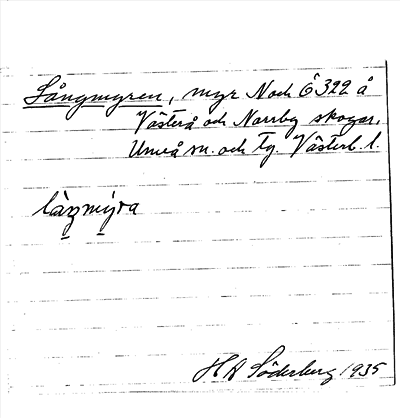 Långmyren, myr N och Ö 322 å
Västerå och Norrby skogar,
Umeå sn. och tg. Västerb. l.
låŋmýra
H A Söderberg 1935